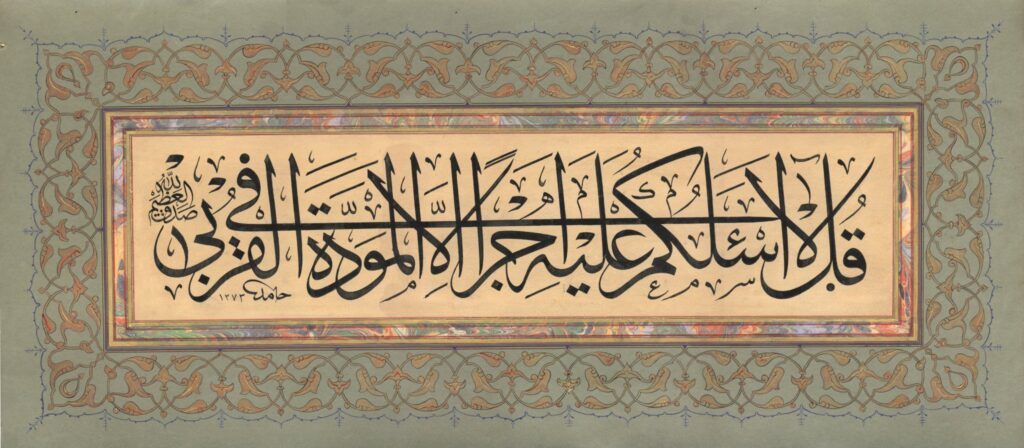 قُلْ لَا اَسْئَلُكُمْ عَلَيْهِ اَجْرًا اِلَّا الْمَوَدَّةَ فِي الْقُرْبٰى
صدق الله العظيم
حامد ١٣٧٣